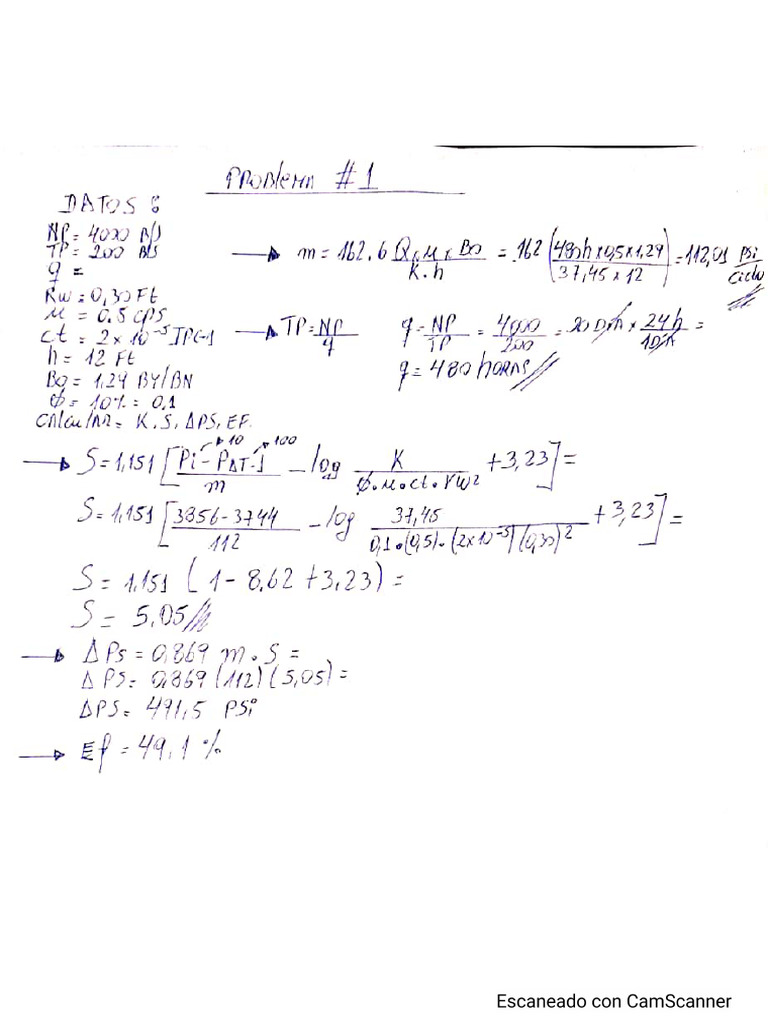 PROBLEMA #1
DATOS:
NP = 4000 B/S
TP = 200 B/S
q =
RW = 0,30 FT
M = 0.5 CPS
Ct = 2 x 10⁻⁵ IPC-1
h = 12 FT
BO = 1,29 BY/BN
Φ = 10% = 0.1
CALCULAR = K, S, ΔPS, EF.
→ m = 162.6 Q x M x BO / K.h = 162 (480h x 0,5 x 1,29 / 37,45 x 12) = 112,01 psi/ciclo
→ TP = NP/q q = NP/TP = 4000/200 = x 24h =
q = 480 horas
→ S = 1,151 [Pi → 10 - PΔT-1 → 100 / m - log K / Φ.M.Ct.rw² + 3,23] =
S = 1,151 [3856 - 3744 / 112 - log 37,45 / 0,1.(0,5).(2x10⁻⁵)(0,30)² + 3,23] =
S = 1,151 (1 - 8,62 + 3,23) =
S = 5,05
→ ΔPs = 0,869 m.S =
ΔPS = 0,869 (112) (5,05) =
ΔPS = 491,5 PSi
→ Ef = 49,1 %
Escaneado con CamScanner